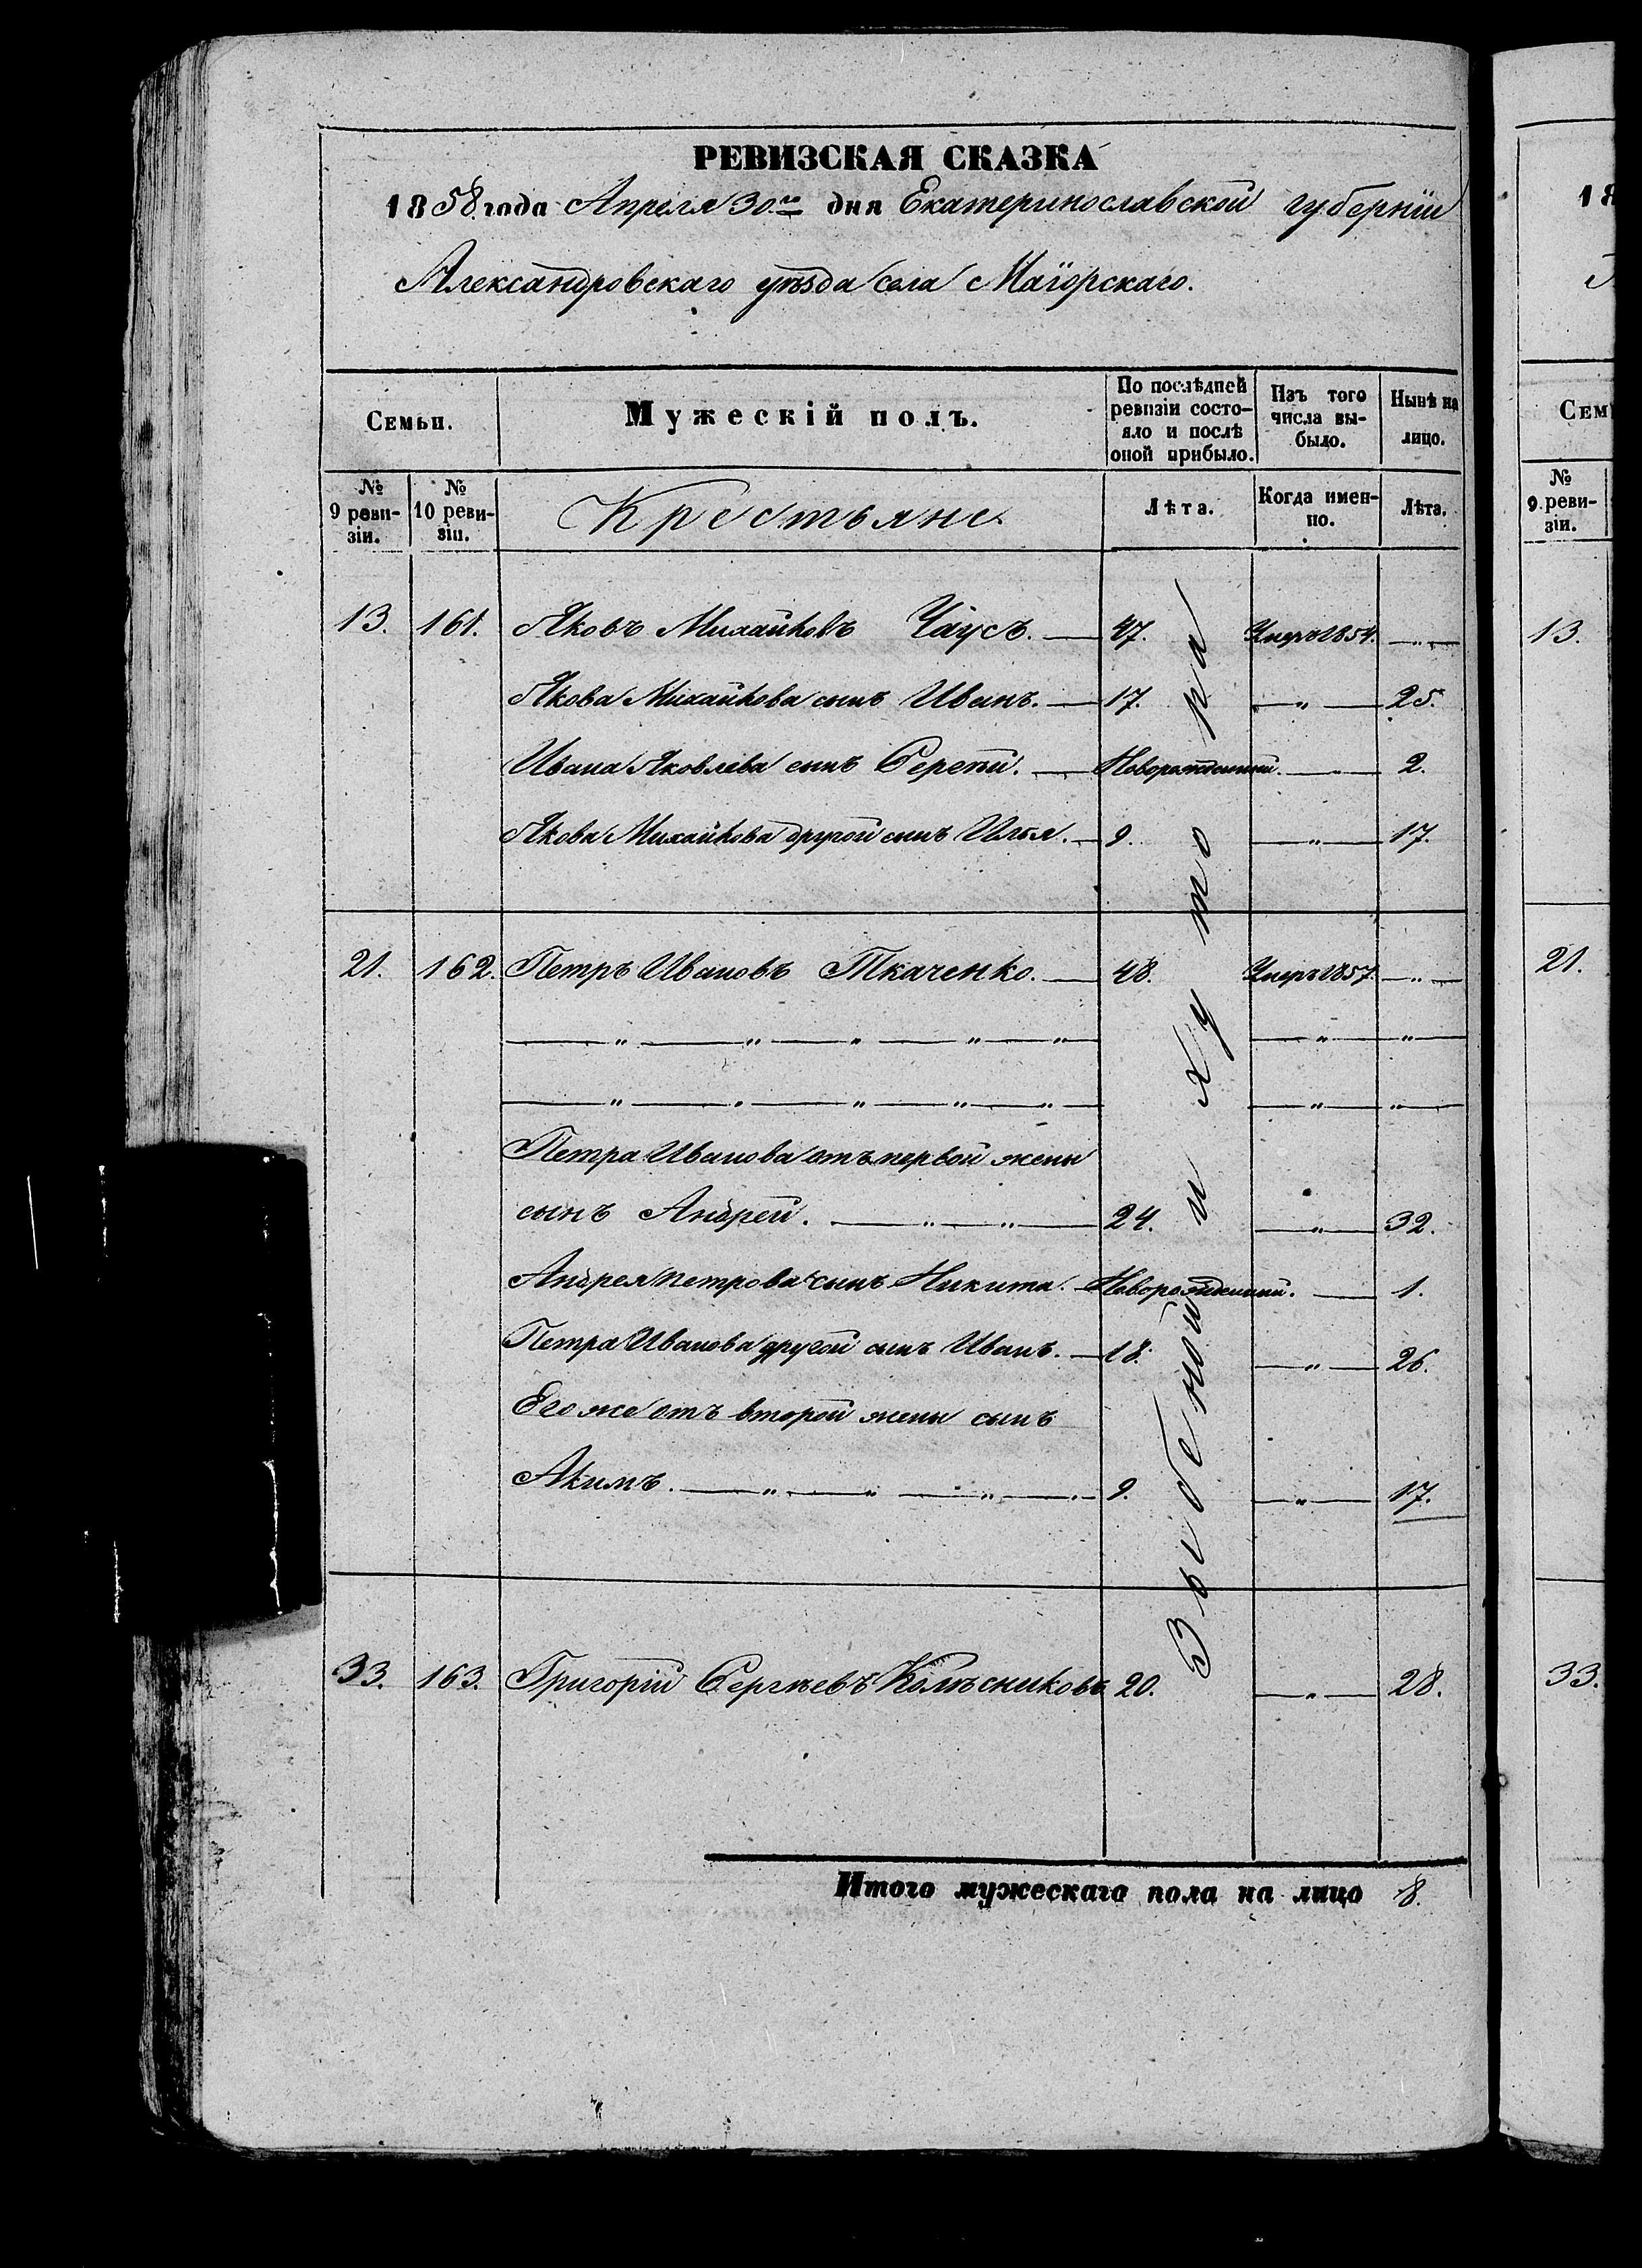 РЕВИЗСКАЯ СКАЗКА
1858 года Апреля 30.го дня Екатеринославской губернiи
Александровскаго уѣзда села Маiорскаго.
Семьи.
Мужескiй полъ.
По послѣдней ревизiи состояло и послѣ оной прибыло.
Изъ того числа выбыло.
Нынѣ на лицо.
№ 9 ревизiи.
№ 10 ревизiи.
Крестьяне
Лѣта.
Когда именно.
Лѣта.
13. 161. Яковъ Михайловъ Чаусъ. — 47. Умеръ 1854. — „ —
Якова Михайлова сынъ Иванъ. — 17. — „ — 25.
Ивана Яковлева сынъ Сергей. — Новорожденный. — „ — 2.
Якова Михайлова другой сынъ Илья. — 9. — „ — 17.
21. 162. Петръ Ивановъ Ткаченко. — 48. Умеръ 1857. — „ —
— „ — „ — „ — „ — „ — — „ — — „ —
— „ — „ — „ — „ — „ — — „ — — „ —
Петра Иванова отъ первой жены
сынъ Андрей. — „ — „ — 24. — „ — 32.
Андрея Петрова сынъ Никита. — Новорожденный. — 1.
Петра Иванова другой сынъ Иванъ. — 18. — „ — 26.
Его же отъ второй жены сынъ
Акимъ. — „ — „ — „ — 9. — „ — 17.
33. 163. Григорiй Сергѣевъ Колѣсниковъ 20. — „ — 28.
Итого мужескаго пола на лицо 8.
хутора
18
Сем
№ 9 ревизiи.
13.
21.
33.